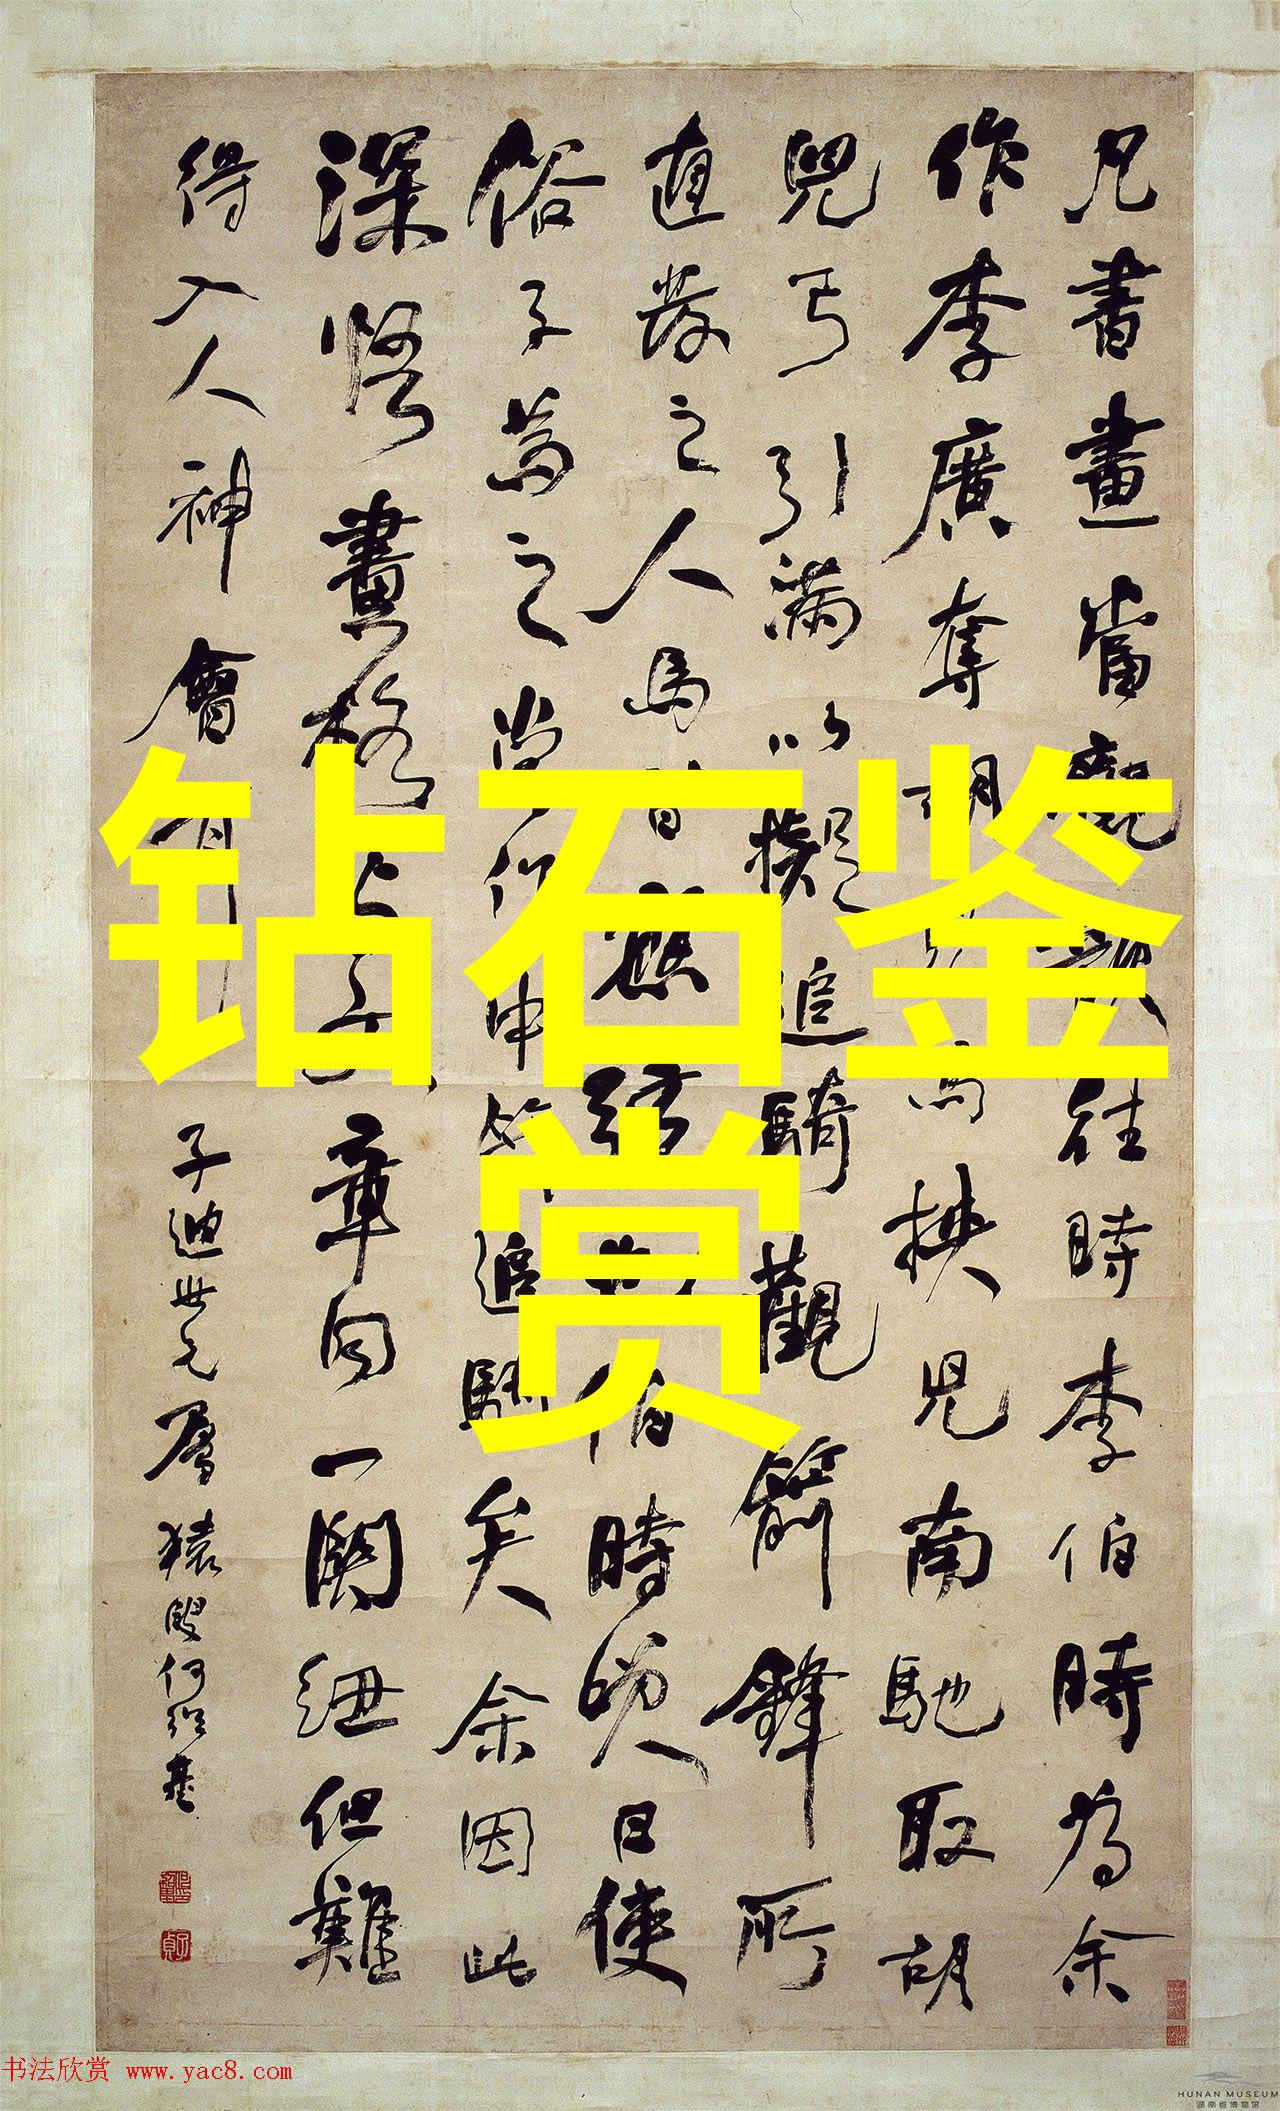 凡書畫當觀韻往時李伯時為余
作李廣奪胡兒馬挾兒南馳取胡
兒弓引滿以擬追騎觀箭鋒所
直發之人馬皆應弦也伯時笑曰使
俗子為之當作中箭追騎矣余因此
深悟畫格此与文章同一關紐但難
得入人神會耳
子迪世兄屬 猿叟何紹基
钻石鉴
赏
书法欣赏 www.yac8.com
HUNAN MUSEUM
湖南省博物馆